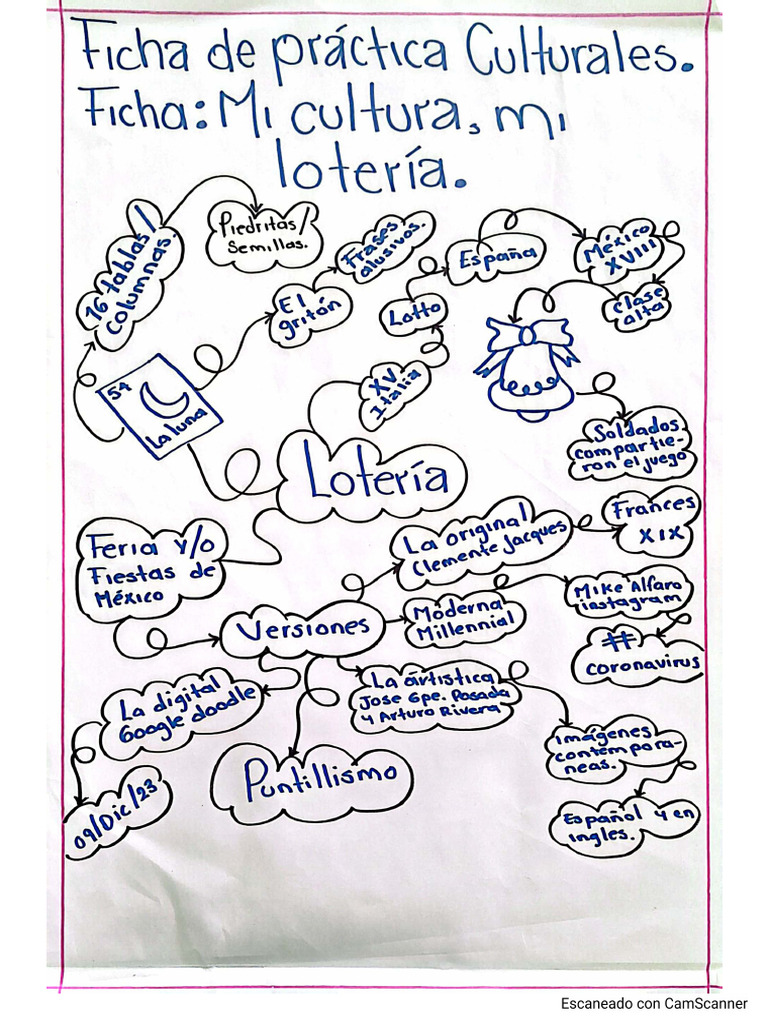 Ficha de práctica Culturales.
Ficha: Mi cultura, mi
lotería.
16 tablas/
columnas.
Piedritas/
Semillas.
El
gritón
Frases
alusivos.
Lotto
España
México
XVIII
Clase
alta
54
La luna
XV
Italia
Soldados
compartie-
ron el juego
Lotería
Feria y/o
Fiestas de
México
La original
Clemente Jacques
Frances
XIX
Versiones
Moderna
Millennial
Mike Alfaro
instagram
#
coronavirus
La digital
Google doodle
La artistica
Jose Gpe. Posada
y Arturo Rivera
Imágenes
contempora-
neas.
Puntillismo
09/Dic/23
Español y en
ingles.
Escaneado con CamScanner